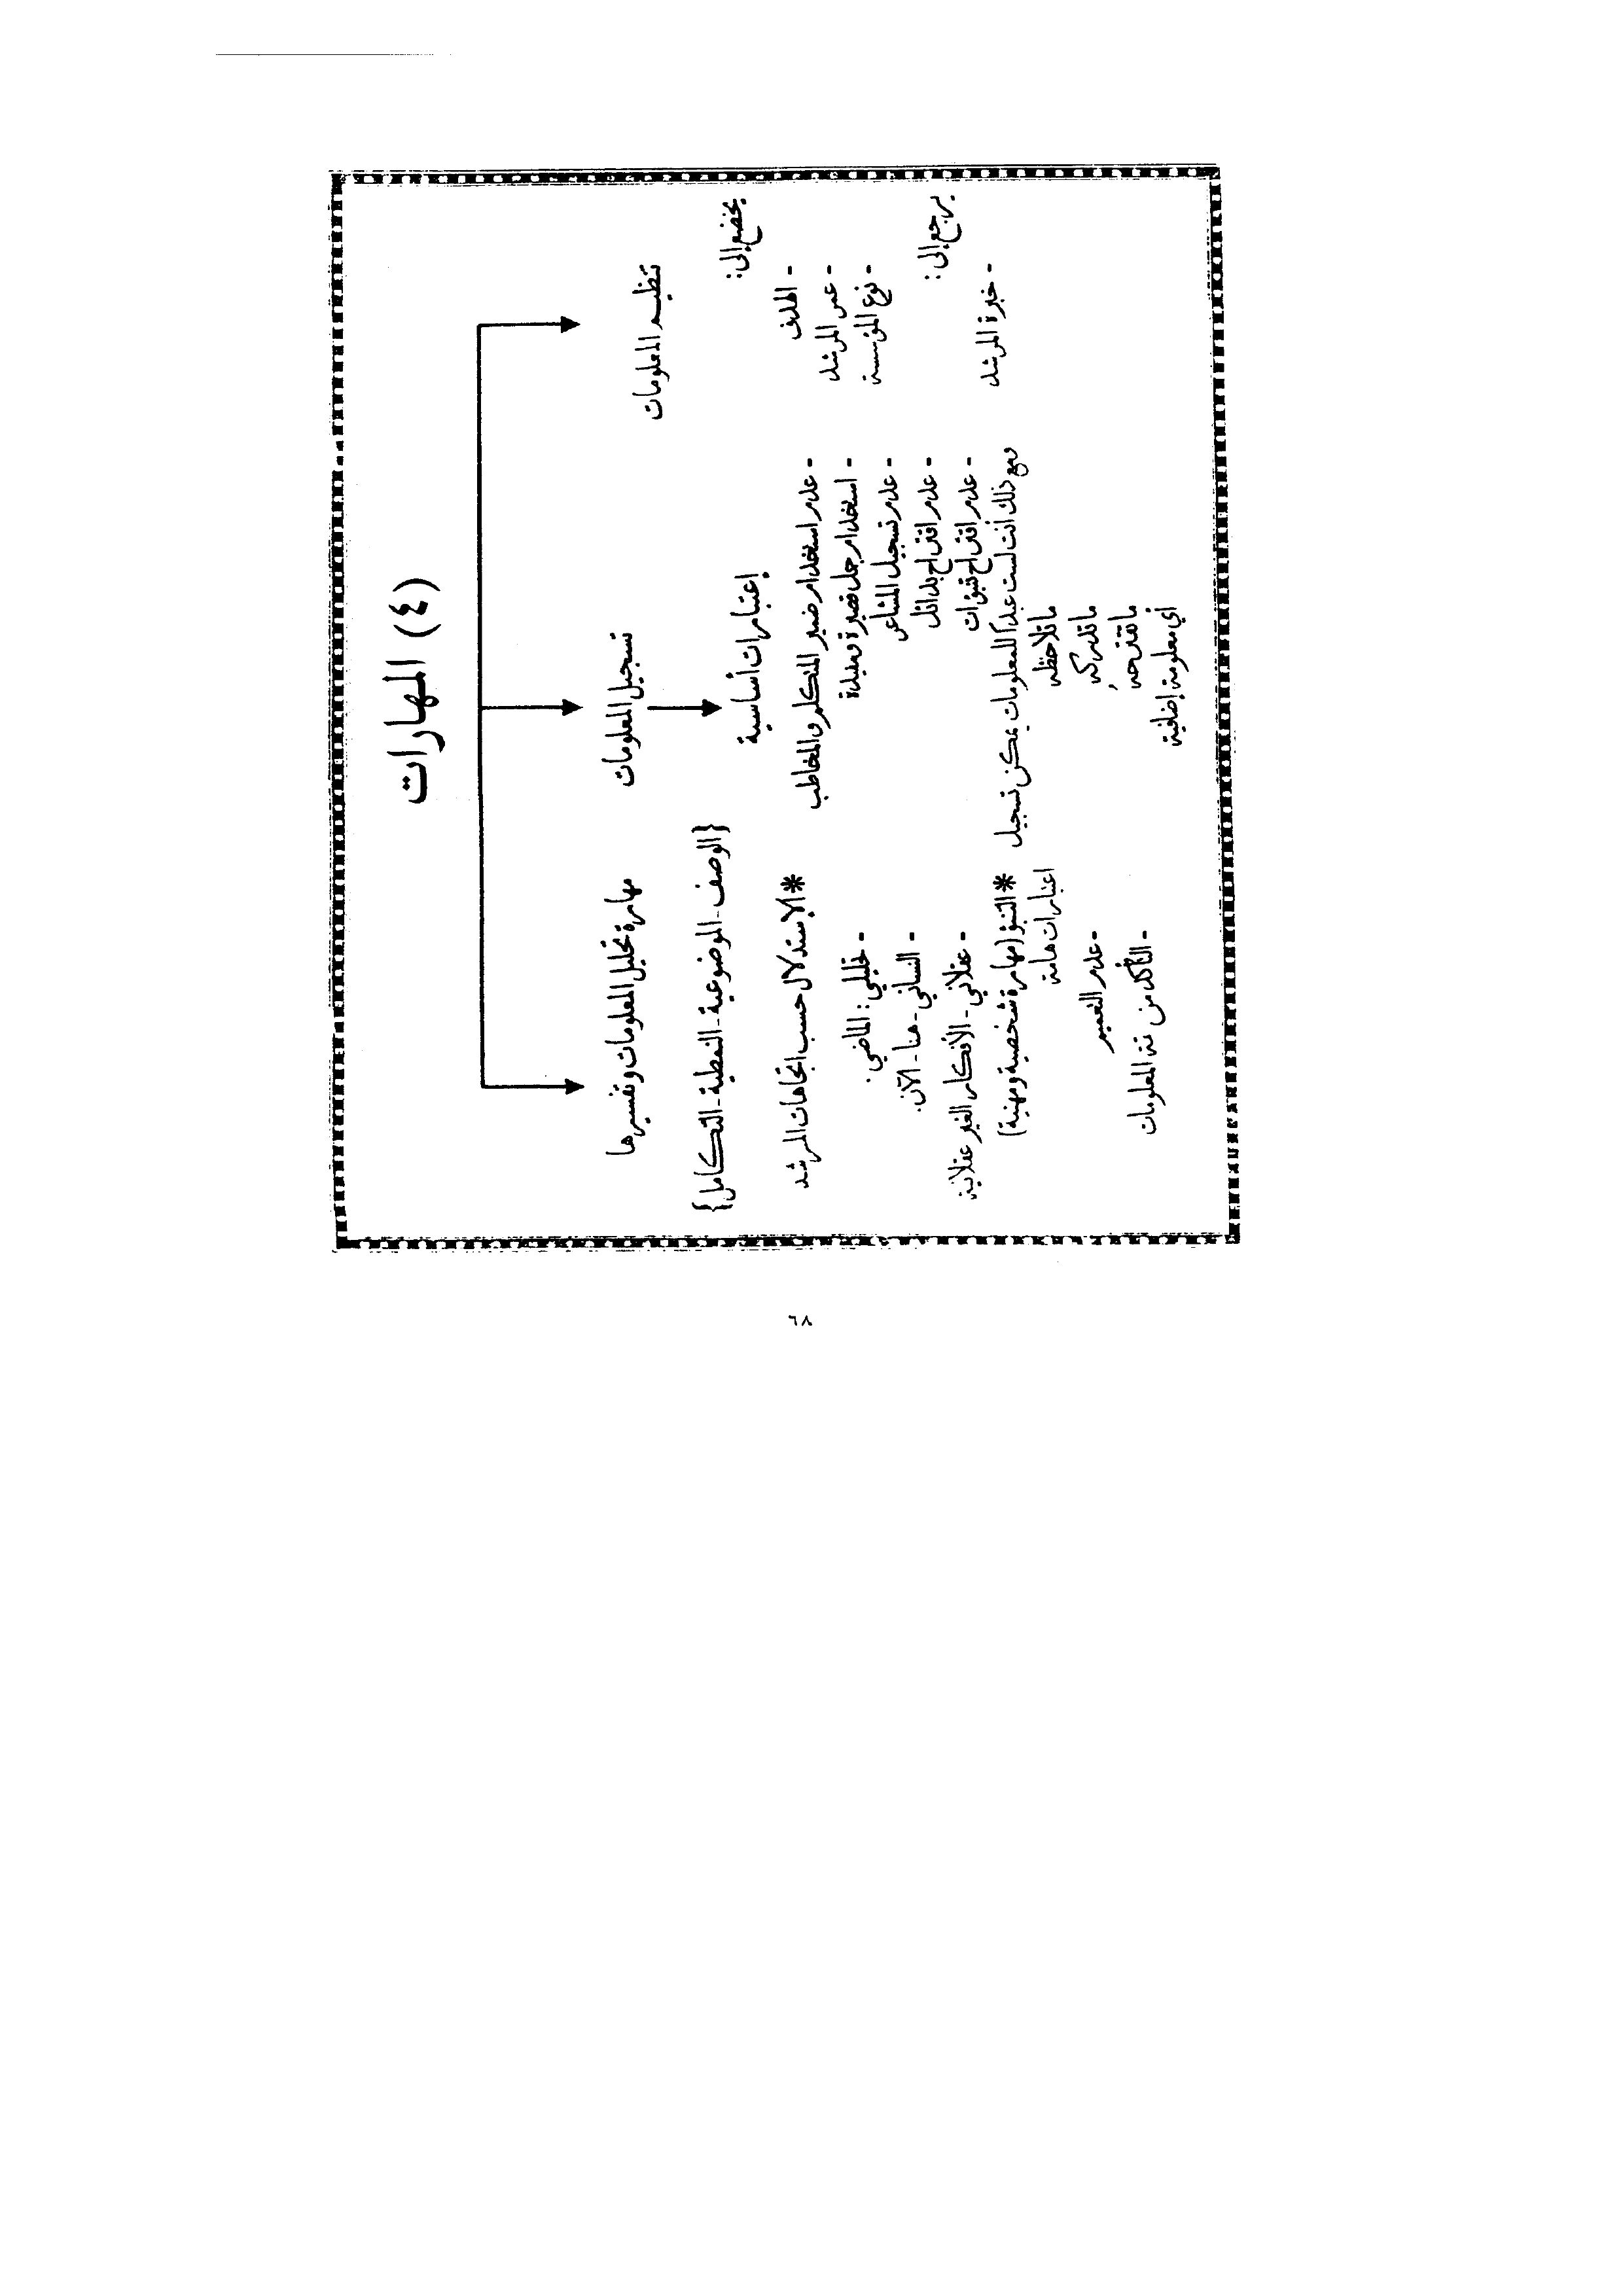 (٤) المهارات
تنظيم المعلومات
يخضع إلى:
- الهدف
- عمر المرشد
- نوع المؤسسة
يرجع إلى:
- خبرة المرشد
تسجيل المعلومات
إعتبارات أساسية
- عدم استخدام ضمير المتكلم والمخاطب
- استخدام جمل قصيرة ومفيدة
- عدم تسجيل المشاعر
- عدم اقتراح بدائل
- عدم اقتراح تنبؤات
ومع ذلك أنت لست عبداً للمعلومات يمكن تسجيل
ما تلاحظه
ما تدركه
ما تقترحه
أي معلومة إضافية
مهارة تحليل المعلومات وتفسيرها
{الوصف - الموضوعية - النمطية - التكامل}
* الإستدلال حسب اتجاهات المرشد
- تحليلي: الماضي.
- انساني - هنا - الآن.
- عقلاني - الأفكار الغير عقلانية
* التنبؤ (مهارة شخصية ومهنية)
اعتبارات هامة
- عدم التعميم
- التأكد من المعلومات
٦٨